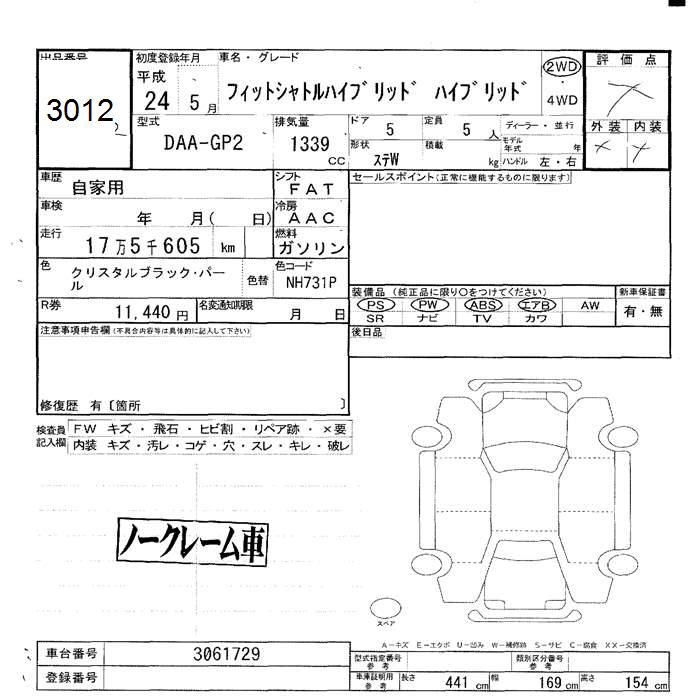 出品番号
3012
初度登録年月
平成
24 5 月
車名・グレード
フィットシャトルハイブリッド ハイブリッド
2WD
4WD
評価点
外装 内装
型式
DAA-GP2
排気量
1339
CC
ドア
5
定員
5 人
ディーラー・並行
形状
ステW
積載
kg
モデル年式
年
ハンドル 左・右
車歴
自家用
シフト
FAT
セールスポイント(正常に機能するものに限ります)
車検
年 月( 日)
冷房
AAC
走行
17万5千605 km
燃料
ガソリン
色
クリスタルブラック・パール
色替
色コード
NH731P
装備品 (純正品に限り○をつけてください)
新車保証書
PS PW ABS エアB AW
有・無
SR ナビ TV カワ
R券
11,440 円
名変通知期限
月 日
注意事項申告欄(不具合内容等は具体的に記入して下さい)
後日品
修復歴 有〔箇所 〕
検査員記入欄
FW キズ・飛石・ヒビ割・リペア跡・×要
内装 キズ・汚レ・コゲ・穴・スレ・キレ・破レ
ノークレーム車
スペア
A-キズ E-エクボ U-凹み W-補修跡 S-サビ C-腐食 XX-交換済
車台番号
3061729
登録番号
型式指定番号
参考
類別区分番号
参考
車庫証明用
参考
長さ
441 cm
幅
169 cm
高さ
154 cm